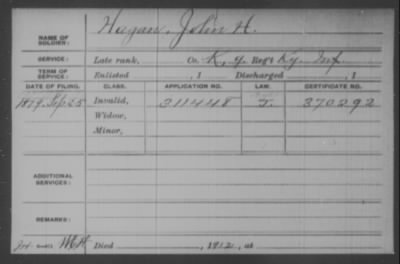 NAME OF SOLDIER: Hagan, John H.
SERVICE: Late rank, Co. K, 9. Reg't Ky. Inf.
TERM OF SERVICE: Enlisted , 1 Discharged , 1
DATE OF FILING. CLASS. APPLICATION NO. LAW. CERTIFICATE NO.
1879. Sep 25 Invalid, 311448 J. 370292
Widow,
Minor,
ADDITIONAL SERVICES:
REMARKS:
Died , 1912, at